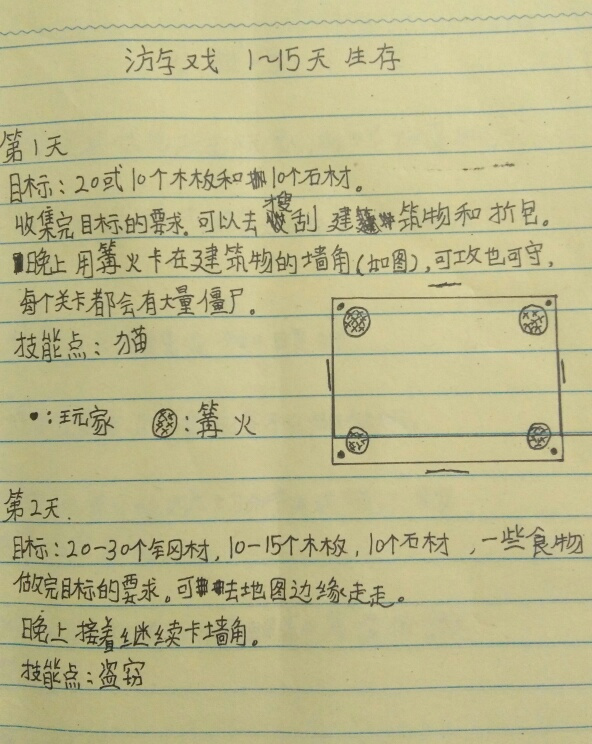 游戏 1~15天 生存
第1天
目标：20或10个木板和10个石材。
收集完目标的要求。可以去搜刮 建筑物和拆包。
晚上用篝火卡在建筑物的墙角(如图)，可攻也可守，
每个关卡都会有大量僵尸。
技能点：猫
：玩家 ：篝火
第2天.
目标：20-30个钢材，10-15个木板，10个石材，一些食物
做完目标的要求。可去地图边缘走走。
晚上接着继续卡墙角。
技能点：盗窃